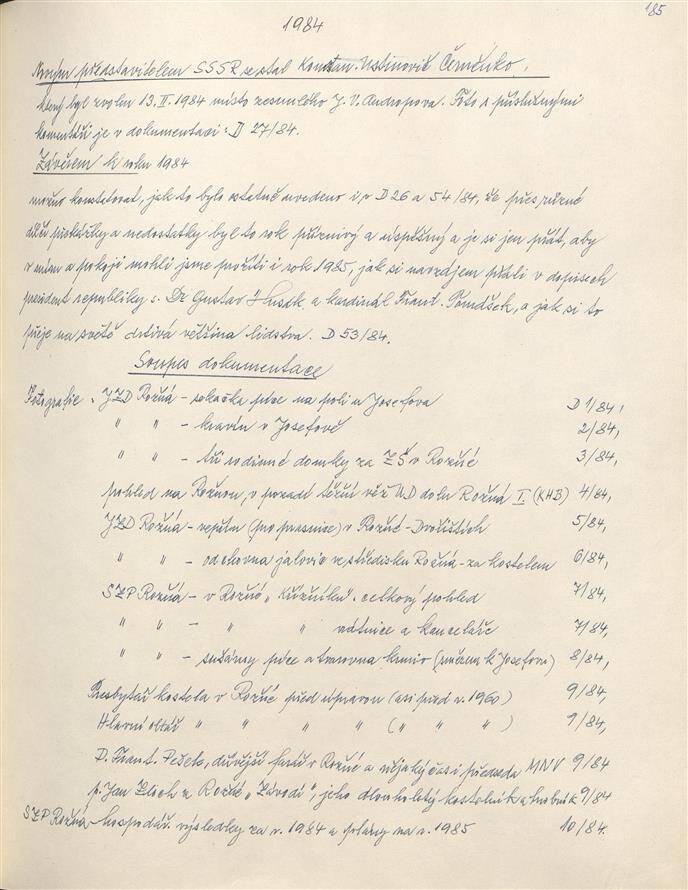 185
1984
Novým představitelem SSSR se stal Konstan. Ustinovič Černěnko,
který byl zvolen 13. II. 1984 místo zesnulého J. V. Andropova. Foto s příslušnými
komentáři je v dokumentaci: D 27/84.
Závěrem k roku 1984
možno konstatovat, jak to bylo ostatně uvedeno i v D 26 a 54/84, že přes různé
dílčí překážky a nedostatky byl to rok příznivý a úspěšný a je si jen přát, aby
v míru a pokoji mohli jsme prožíti i rok 1985, jak si navzájem přáli v dopisech
prezident republiky s. Dr Gustav Husák a kardinál Frant. Tomášek, a jak si to
přeje na světě drtivá většina lidstva. D 53/84.
Soupis dokumentace
Fotografie: JZD Rožná - sekačka píce na poli u Josefova D 1/84,
" " - kravín v Josefově 2/84,
" " - tři rodinné domky za ZŠ v Rožné 3/84,
pohled na Rožnou, v pozadí těžní věž UD dolu Rožná I (KHB) 4/84,
JZD Rožná - vepřín (pro prasnice) v Rožné-Dvořištích 5/84,
" " - odchovna jalovic ve středisku Rožná-za kostelem 6/84,
SZP Rožná - v Rožné „Křížníku" celkový pohled 7/84,
" " - " " vrátnice a kanceláře 7/84,
" " - sušárny píce a tvarovna krmiv (směrem k Josefovu) 8/84,
Presbytář kostela v Rožné před úpravou (asi před r. 1960) 9/84,
Hlavní oltář " " " " ( " " " ) 9/84,
P. Frant. Pešek, dřívější farář v Rožné a nějaký čas i předseda MNV 9/84
p. Jan z Rožné „Závodí", jeho dlouholetý kostelník a hrobník 9/84
SZP Rožná - hospodář. výsledky za r. 1984 a plány na r. 1985 10/84.